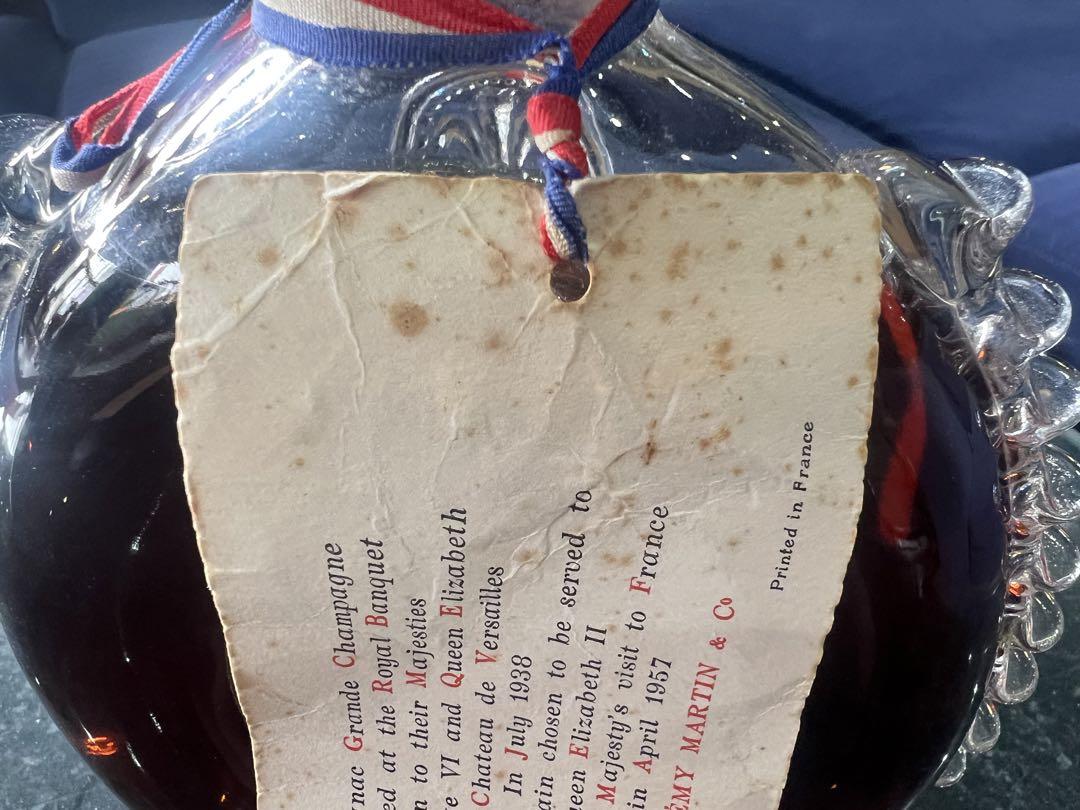 rnac Grande Champagne
ed at the Royal Banquet
n to their Majesties
e VI and Queen Elizabeth
Chateau de Versailles
In July 1938
ain chosen to be served to
een Elizabeth II
Majesty's visit to France
in April 1957
ÉMY MARTIN & Co
Printed in France